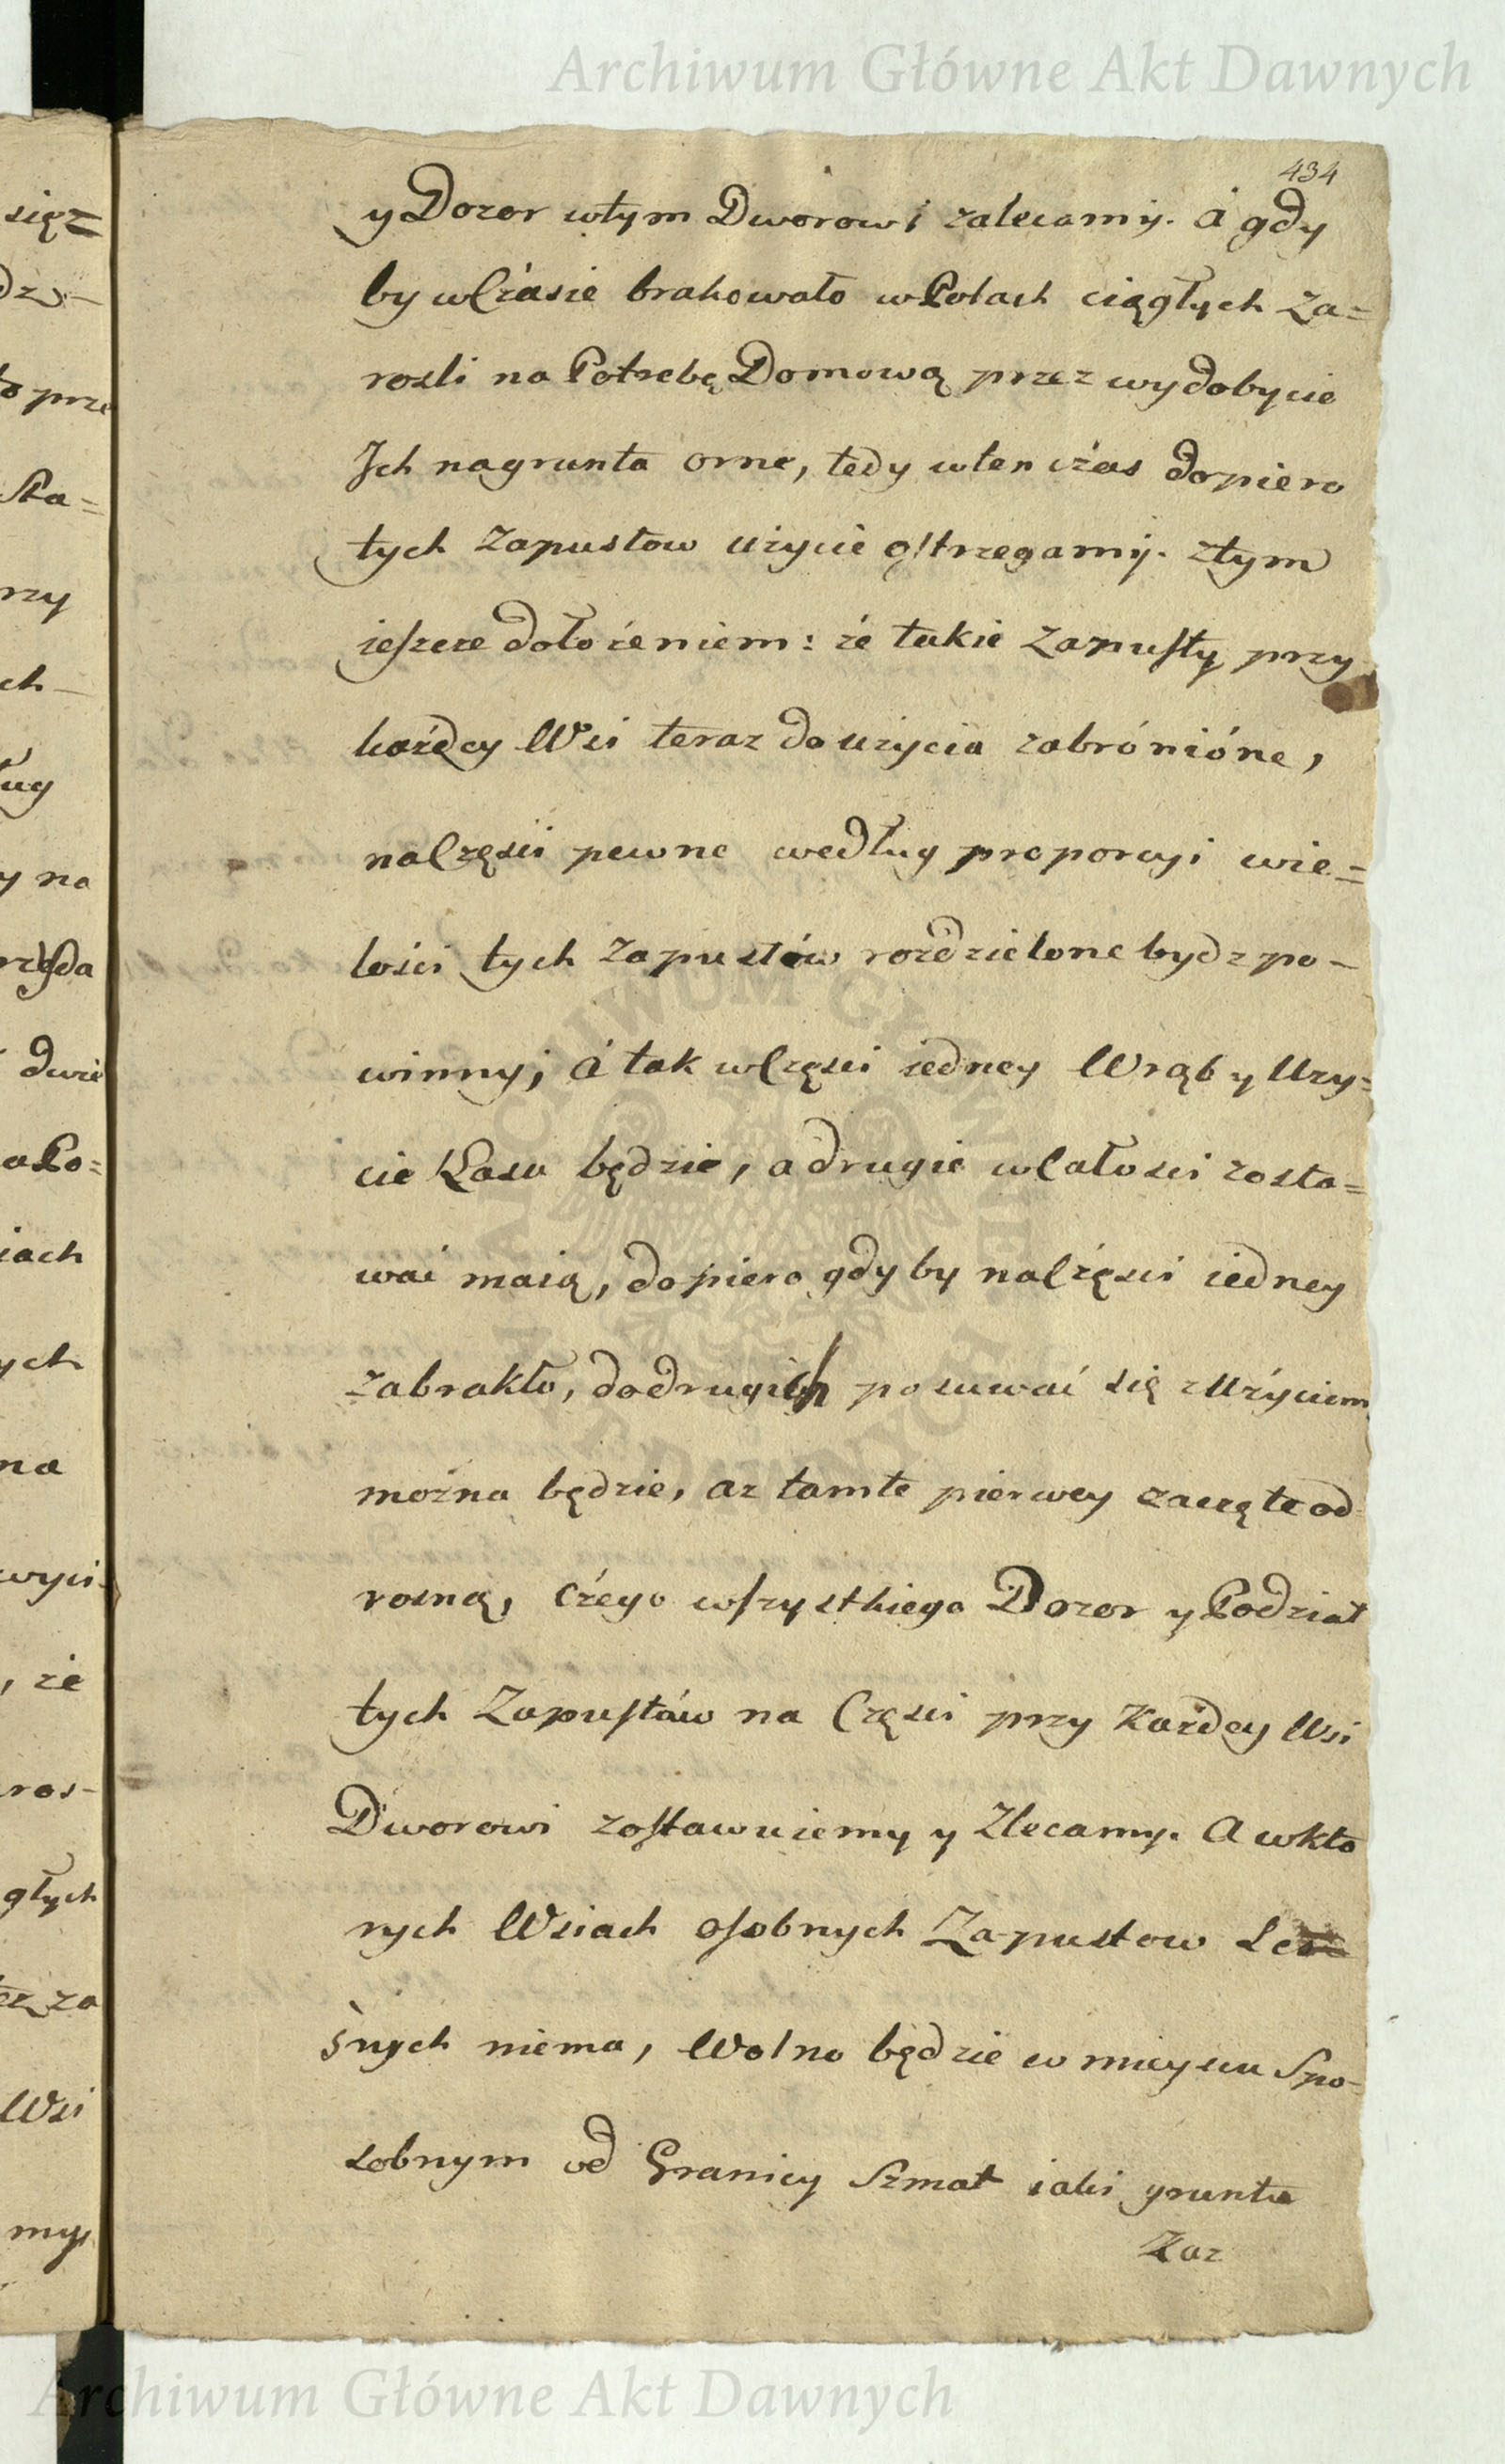 Archiwum Główne Akt Dawnych
434
y Dozor wtym Dworowi zalecamÿ. á gdy
by wCzasie brakowało wPolach ciągłych Za=
rosli na Potrzebę Domową przez wydobycie
Ich nagrunta orne, tedy wten czas dopiero
tych Zapustow użycie ostrzegamÿ. ztym
ieszcze dołożeniem: że takie Zapusty przy
każdey Wsi teraz do użycia zabróniónе,
naCzęsci pewne według proporcyi wie=
lości tych Zapustów rozdzielone bydz po-
winny; á tak wCzęsci iedney Wrąb y Uzy=
cie Lasu będzie, a drugie wCałosci zosta=
wać maią, dopiero gdy by naCzęsci iedney
zabrakło, dodrugich posuwać się z Użyciem
można będzie, az tamte pierwey zaczęte od
rosną, czego wszystkiego Dozor y Podział
tych Zapustów na Częsci przy Każdey Wsi
Dworowi zostawuiemy y Zlecamy. A wkto
rych Wsiach osobnych Zapustow Le
śnych niema, Wolno będzie w mieyscu Spo-
sobnym od Granicy Szmat iaki gruntu
Zaz
sięz=
dzy-
to prze
Ska=
rzy
ch-
ług
y na
dwie
aPo=
iach
ych
na
wyci
, że
ros-
głych
za
Wsi
my
ARCHIWUM GŁÓWNE AKT DAWNYCH
Archiwum Główne Akt Dawnych